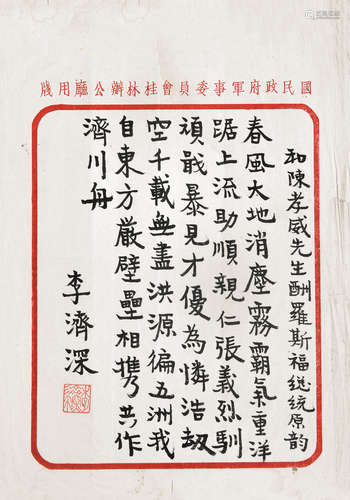 國民政府軍事委員會桂林辦公廳用牋
和陳孝威先生酬羅斯福總統原韵
春風大地消塵霧霸氣重洋
踞上流助順親仁張義烈馴
頑戢暴見才優為憐浩劫
空千載無盡洪源徧五洲我
自東方嚴壁壘相携共作
濟川舟
李濟深